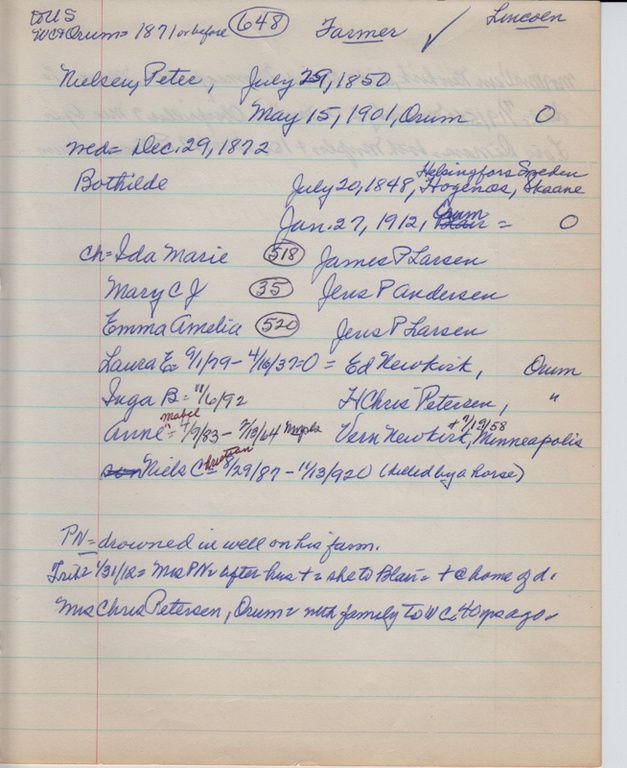 to US
WC & Orum = 1871 or before 648 Farmer ✓ Lincoln
Nielsen, Peter, July 29, 1850
May 15, 1901, Orum O
med = Dec. 29, 1872
Helsingfors Sweden
Bothilde July 20, 1848, Hogenos, Skaane
Orum
Jan. 27, 1912, Blair = O
ch = Ida Marie 518 James P Larsen
Mary C J 35 Jens P Andersen
Emma Amelia 520 Jens P Larsen
Laura E = 9/1/79 - 4/16/37 = O = Ed Newkirk, Orum
Inga B = 11/6/92 H Chris Petersen, "
Mabel + 7/12/58
Anne = 4/9/83 - 7/13/64 Mpls Vern Newkirk, Minneapolis
Christian
son Niels C = 8/29/87 - 11/13/920 (kicked by a horse)
PN = drowned in well on his farm.
Trib = 1/31/12 = Mrs PN = after hus + = she to Blair = + @ home of d.
Mrs Chris Petersen, Orum = with family to WC 40 yrs ago